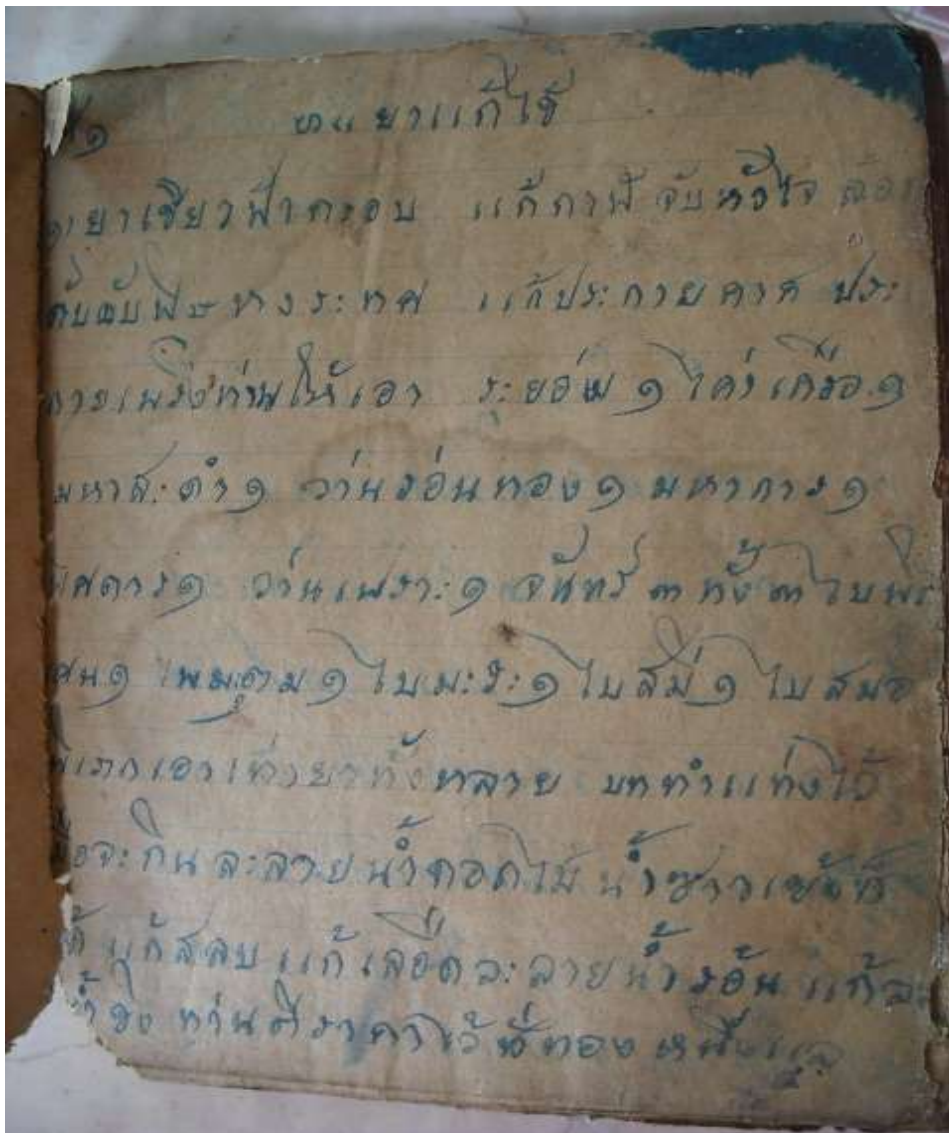 ๑ ยาแก้ไข้
ยาเขียวฟ้าครอบ แก้กาฬจับหัวใจ
ตับ พิษ แก้ประกายดาด ประ
กายเพริงท่านให้เอา ระย่อม ๑ ไคร่เครือ ๑
มหาสะดำ ๑ ว่านร่อนทอง ๑ มหาการ ๑
ว่านเพราะ ๑ จันทร์ ๓ ทั้ง ๓ ใบพิม
เสน ๑ ใบมะระ ๑ ใบสมี่ ๑ ใบสมอ
พิเภกเอาเท่ายาทั้งหลาย บททำแท่งไว้
จะกินละลายน้ำดอกไม้ น้ำซาวเข้าก็
ได้ แก้สลบ แก้เลือดละลายน้ำร้อน แก้ละ
น้ำขิง ท่านตีราคาไว้ ทองหนึ่งแล